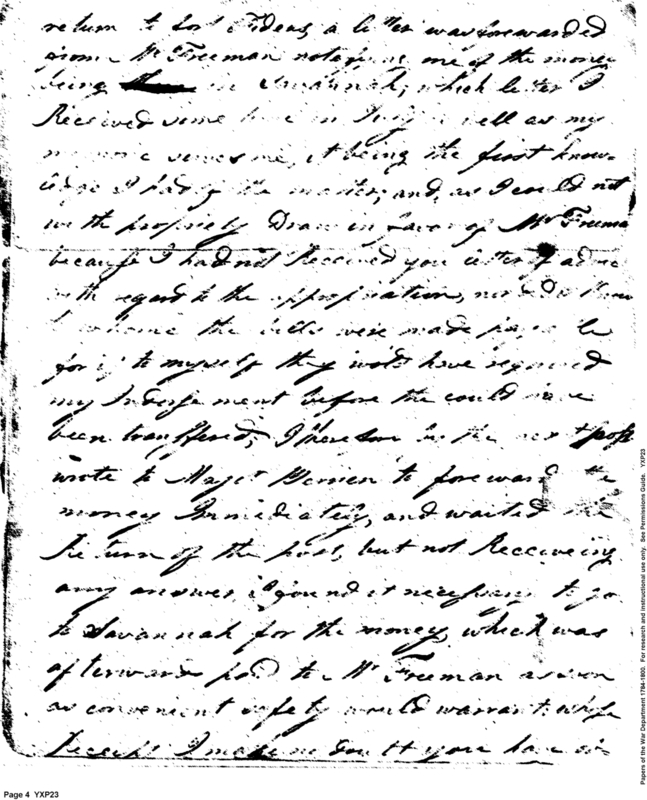 return to a letter was forewarded
from Mr Freeman one of the money
being in Savannah, which letter I
Received some time in as well as my
serves me, it being the first know-
I had of the matter, and, as I could not
with propriety Draw in favor of Mr Freeman
because I had not Received you letter of advice
with regard to the appropriation, nor did I know
to whome the bills were made
for if to myself they would have required
my Indorsement before the could have
been transffered, I therefore by the next post
wrote to Majer to foreward the
money Immediately, and waited the
Return of the post, but not Receiveing
any answer, I found it necessary to go
to Savannah for the money, which was
afterward paid to Mr Freeman as soon
as convenient safety would warrant, whose
Receipt I make no doubt you have
Page 4 YXP23
Papers of the War Department 1784-1800. For research and instructional use only. See Permissions Guide. YXP23